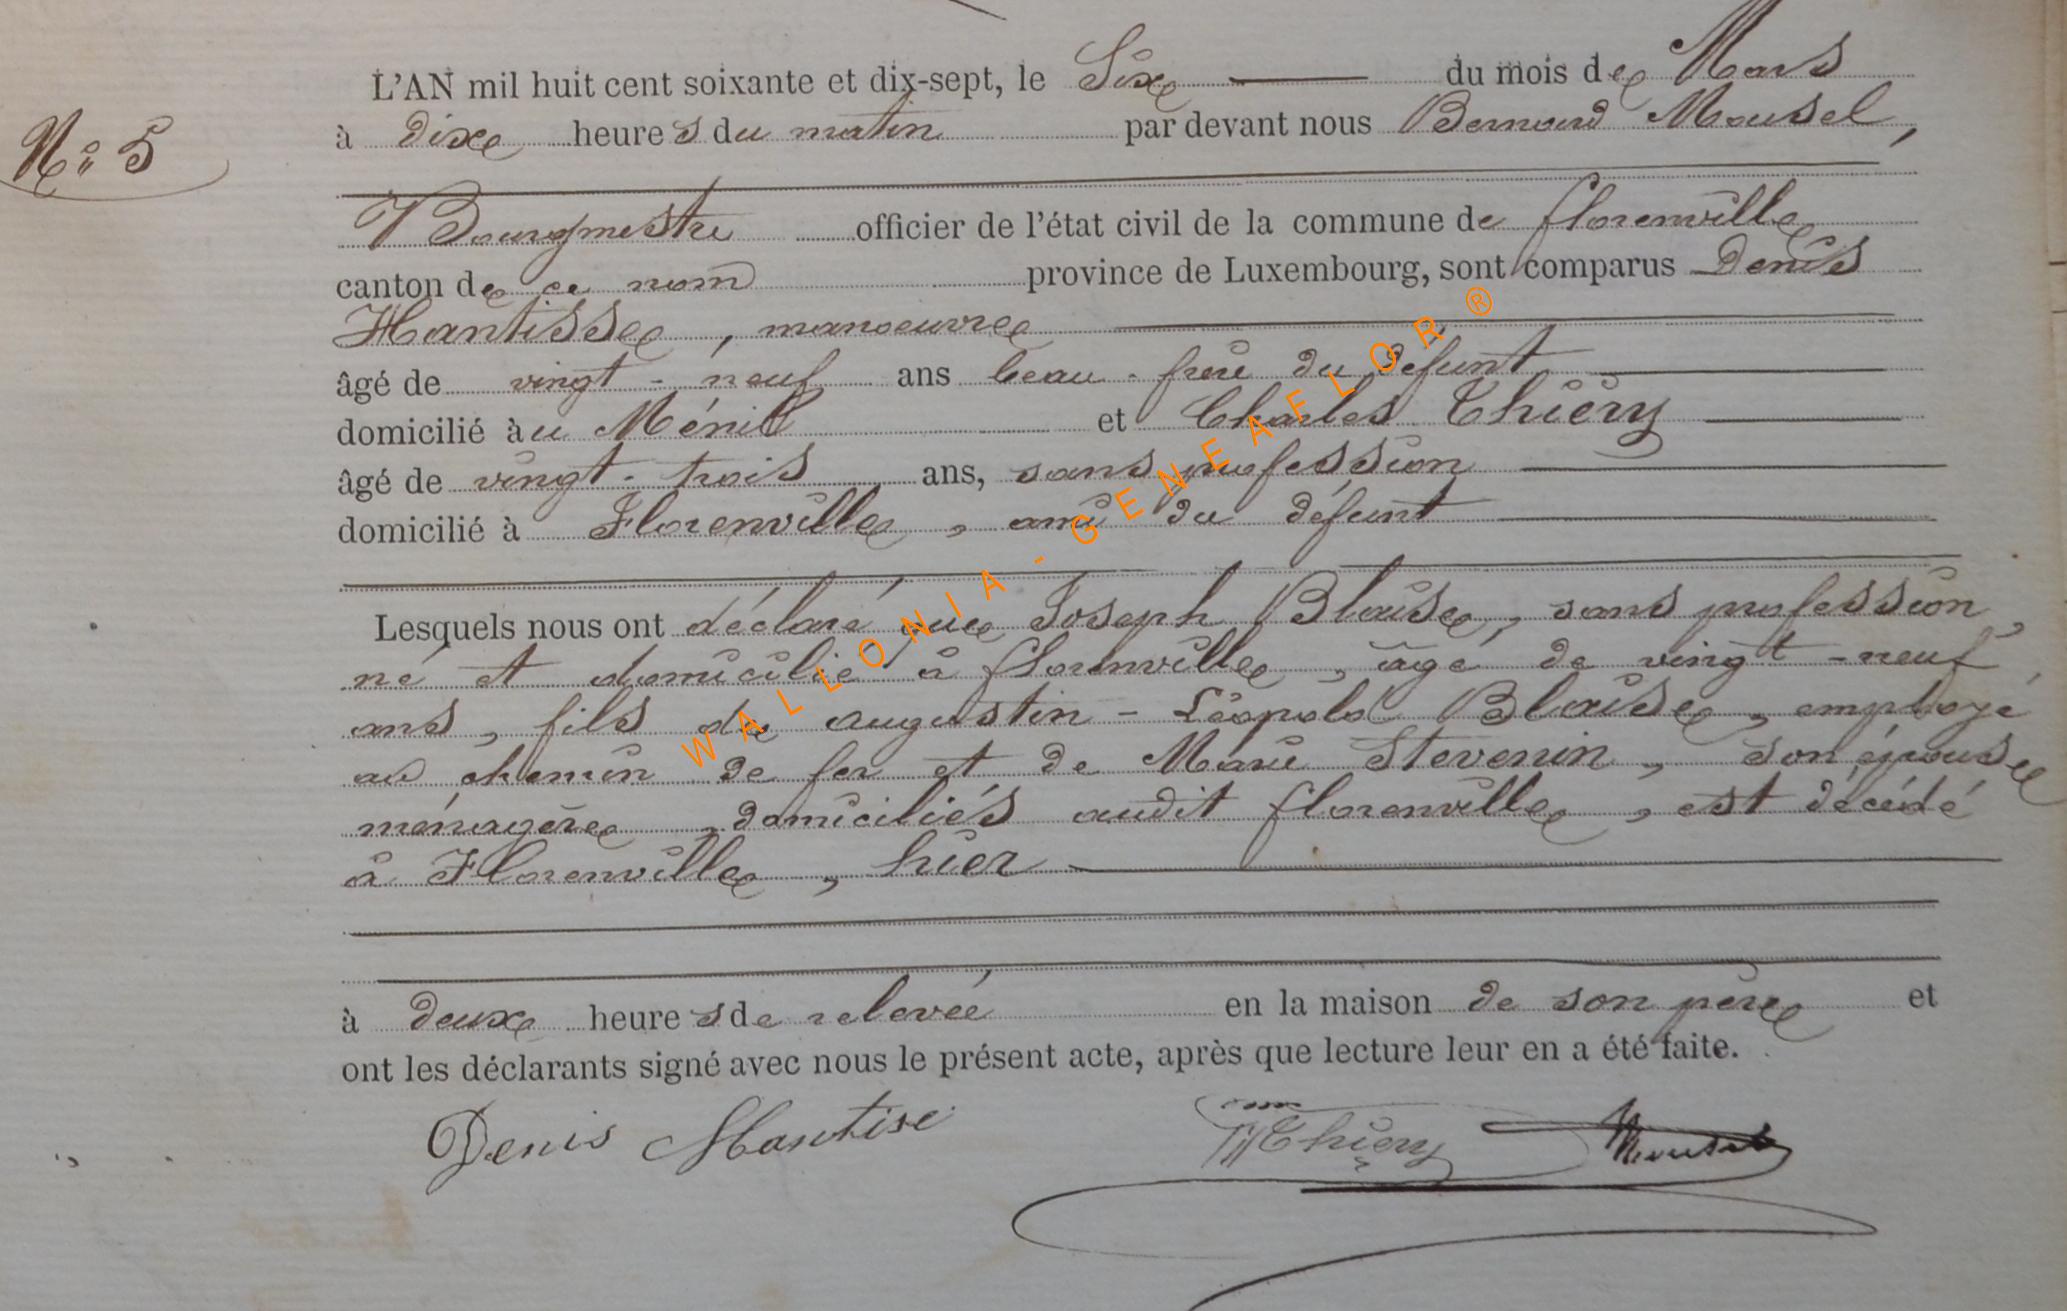 L'AN mil huit cent soixante et dix-sept, le Six du mois de Mars
N° 5
à dix heures du matin par devant nous Bernard Mousel,
Bourgmestre officier de l'état civil de la commune de florenville
canton de ce nom province de Luxembourg, sont comparus Denis
Hantisse, manoeuvre
âgé de vingt-neuf ans beau-frère du défunt
domicilié au Ménil et Charles Thiéry
âgé de vingt-trois ans, sans profession
domicilié à Florenville, ami du défunt
Lesquels nous ont déclaré que Joseph Blaise, sans profession,
né et domicilié à florenville, âgé de vingt-neuf
ans, fils de augustin-Léopold Blaise, employé
au chemin de fer et de Marie Stevenin, son épouse
ménagère, domiciliés audit florenville, est décédé
à Florenville, hier
à deux heures de relevée en la maison de son père et
ont les déclarants signé avec nous le présent acte, après que lecture leur en a été faite.
Denis Hantise Thiéry Mousel
WALLONIA-GENEAFLOR®